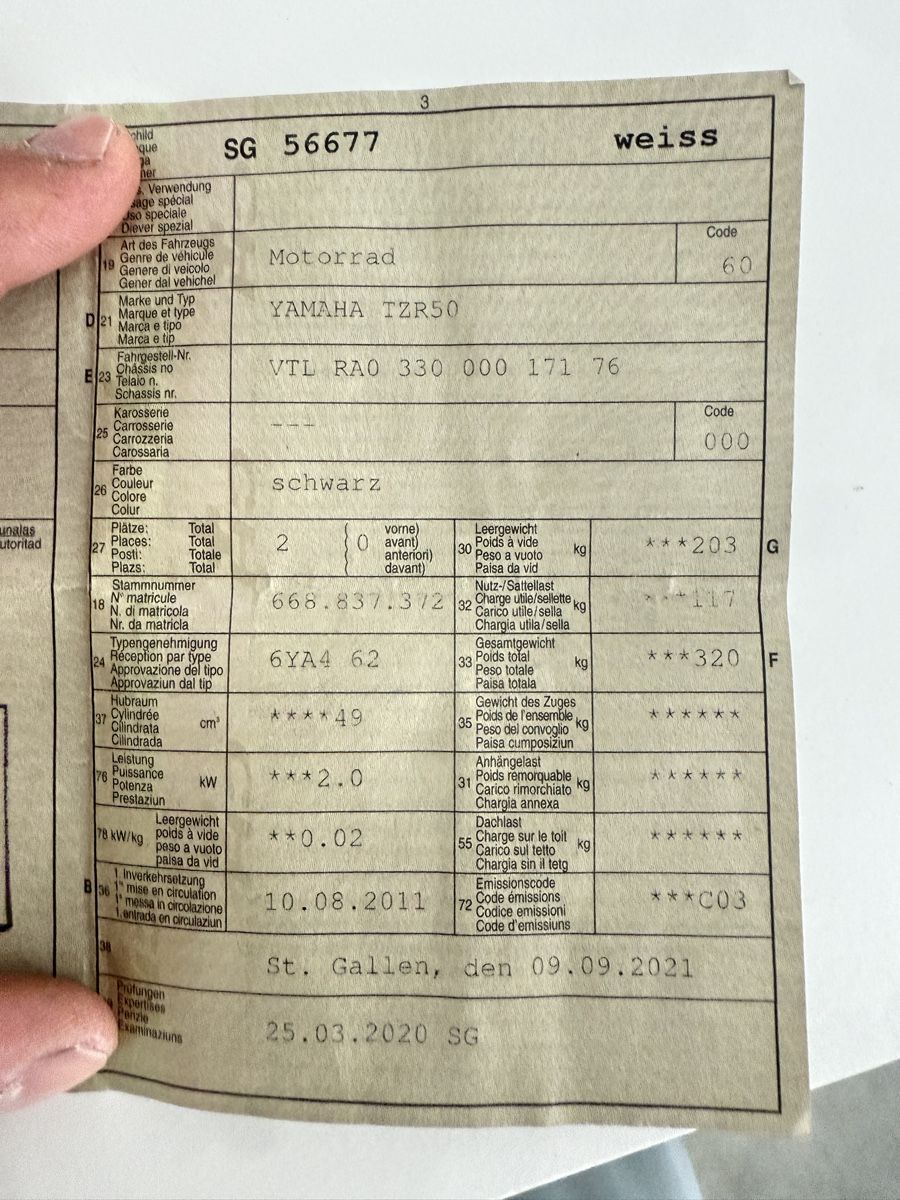 3
SG 56677 weiss
Verwendung
Uso speciale
Diever spezial
19 Art des Fahrzeugs
Genre de véhicule
Genere di veicolo
Gener dal vehichel
Motorrad
Code
60
D 21 Marke und Typ
Marque et type
Marca e tipo
Marca e tip
YAMAHA TZR50
E 23 Fahrgestell-Nr.
Châssis no
Telaio n.
Schassis nr.
VTL RA0 330 000 171 76
25 Karosserie
Carrosserie
Carrozzeria
Carossaria
---
Code
000
26 Farbe
Couleur
Colore
Colur
schwarz
27 Plätze: Total
Places: Total
Posti: Totale
Plazs: Total
2 (0 vorne)
avant)
anteriori)
davant)
30 Leergewicht
Poids à vide
Peso a vuoto
Paisa da vid
kg
***203 G
18 Stammnummer
N° matricule
N. di matricola
Nr. da matricla
668.837.372
32 Nutz-/Sattellast
Charge utile/sellette
Carico utile/sella
Chargia utila/sella
kg
***117
24 Typengenehmigung
Réception par type
Approvazione del tipo
Approvaziun dal tip
6YA4 62
33 Gesamtgewicht
Poids total
Peso totale
Paisa totala
kg
***320 F
37 Hubraum
Cylindrée
Cilindrata
Cilindrada
cm³
****49
35 Gewicht des Zuges
Poids de l'ensemble
Peso del convoglio
Paisa cumposiziun
kg
******
76 Leistung
Puissance
Potenza
Prestaziun
kW
***2.0
31 Anhängelast
Poids remorquable
Carico rimorchiato
Chargia annexa
kg
******
78 kW/kg Leergewicht
poids à vide
peso a vuoto
paisa da vid
**0.02
55 Dachlast
Charge sur le toit
Carico sul tetto
Chargia sin il tetg
kg
******
B 36 1. Inverkehrsetzung
1re mise en circulation
1a messa in circolazione
1. entrada en circulaziun
10.08.2011
72 Emissionscode
Code émissions
Codice emissioni
Code d'emissiuns
***C03
38
St. Gallen, den 09.09.2021
Prüfungen
Expertises
Perizie
Examinaziuns
25.03.2020 SG